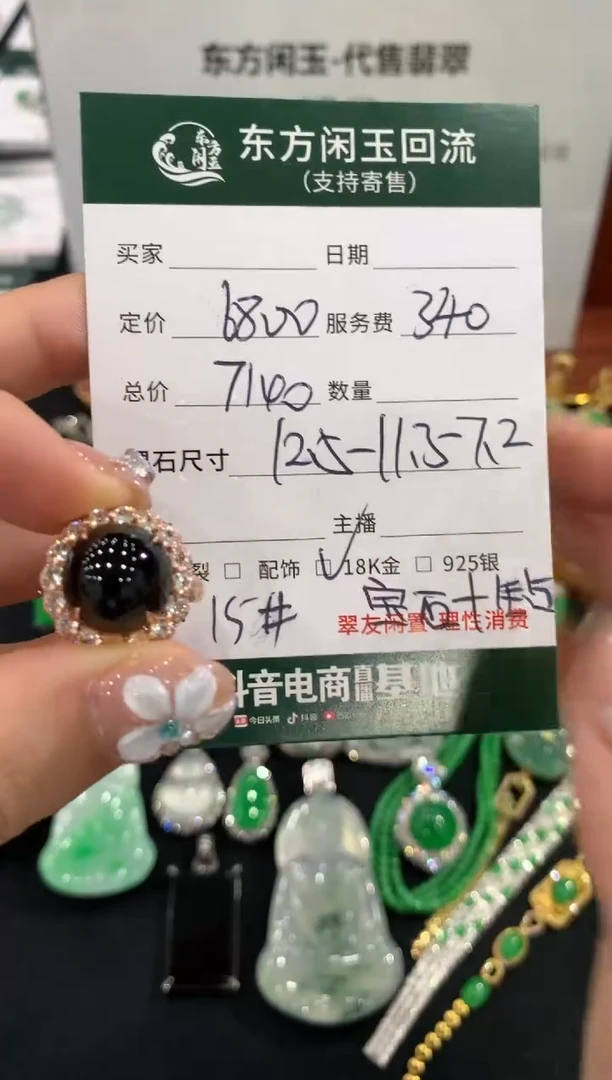 东方闲玉-代售翡翠
东方闲玉
东方闲玉回流
(支持寄售)
买家 日期
定价 6800 服务费 340
总价 7140 数量
石尺寸 12.5-11.3-7.2
主播
裂 □ 配饰 ☑ 18K金 □ 925银
15# 宝石+钻
翠友闲置 理性消费
抖音电商直播基地
今日头条 抖音